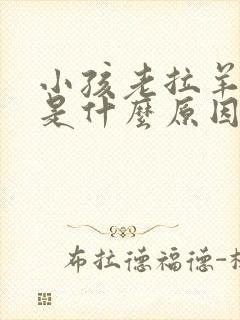 小孩老拉羊
是什麼原因
布拉德福德-